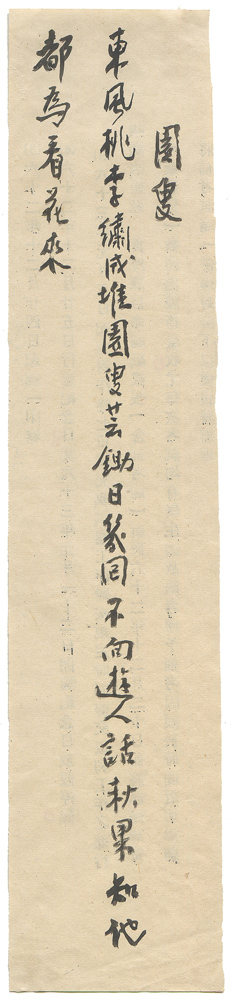 園叟
東風桃李繡成堆園叟芸鋤日幾回不向遊人話秋果知他
都為看花來